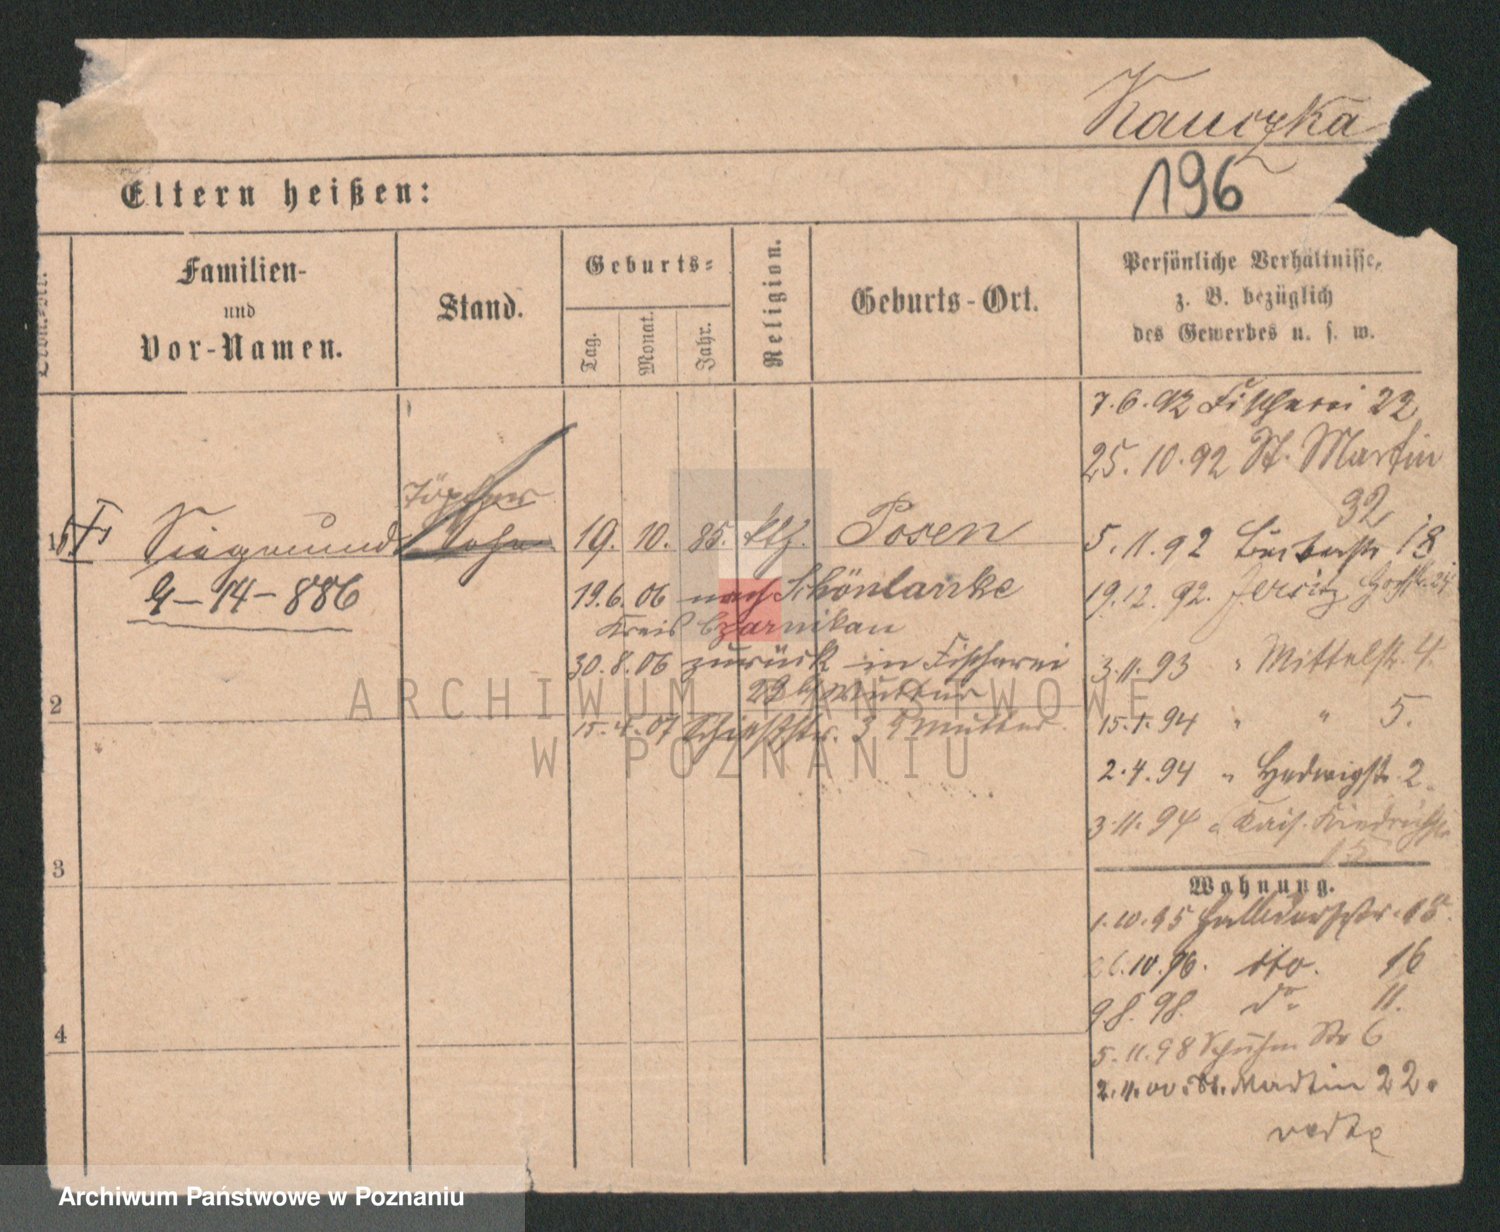 Kauczka
196
Eltern heißen:
Familien-
und
Vor-Namen.
Stand.
Geburts-
Tag.
Monat.
Jahr.
Religion.
Geburts-Ort.
Persönliche Verhältnisse,
z. B. bezüglich
des Gewerbes u. s. w.
7.6.92 Fischerei 22
25.10.92 St. Martin
32
Töpfer
1 Siegmund Sohn 19. 10. 85. kth. Posen
5.11.92 18
9-14-886
19.6.06 nach Schönlanke
19.12.92. Jersitz
Kreis Czarnikau
30.8.06 zurück in Fischerei
3.11.93 " Mittelstr. 4.
22 b/Mutter
2
15.4.07 Schießstr. 3 b Mutter
15.1.94 " " 5.
2.4.94 " Hedwigstr. 2.
3.11.94 " Kais. Friedrichstr.
15
3
Wohnung.
1.10.95 15.
10.96. dto. 16
9.8.98. do 11.
4
5.11.98 Str 6
2.11.00. St. Martin 22.
ARCHIWUM PAŃSTWOWE
W POZNANIU
Archiwum Państwowe w Poznaniu